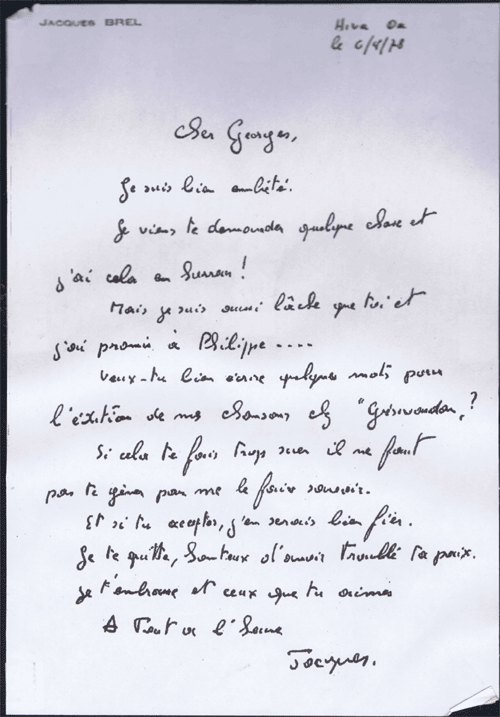 JACQUES BREL
Hiva Oa
le 6/4/78
Cher Georges,
Je suis bien embêté.
Je viens te demander quelque chose et
j'ai cela en horreur !
Mais je suis aussi lâche que toi et
j'ai promis à Philippe ----
Veux-tu bien écrire quelques mots pour
l'édition de mes chansons chez "Grésivaudan" ?
Si cela te fais trop suer il ne faut
pas te gêner pour me le faire savoir.
Et si tu acceptes, j'en serais bien fier.
Je te quitte, honteux d'avoir troublé ta paix.
Je t'embrasse et ceux que tu aimes
A Tout à l'heure
Jacques.